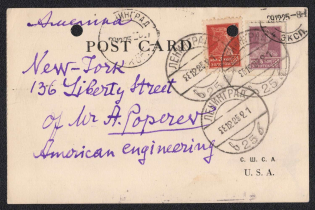 Америка
POST CARD
New-York
136 Liberty Street
of Mr A. Poperev
American engineering
С. Ш. С. А.
U. S. A.
ЛЕНИНГРАД
ЛЕНИНГРАД